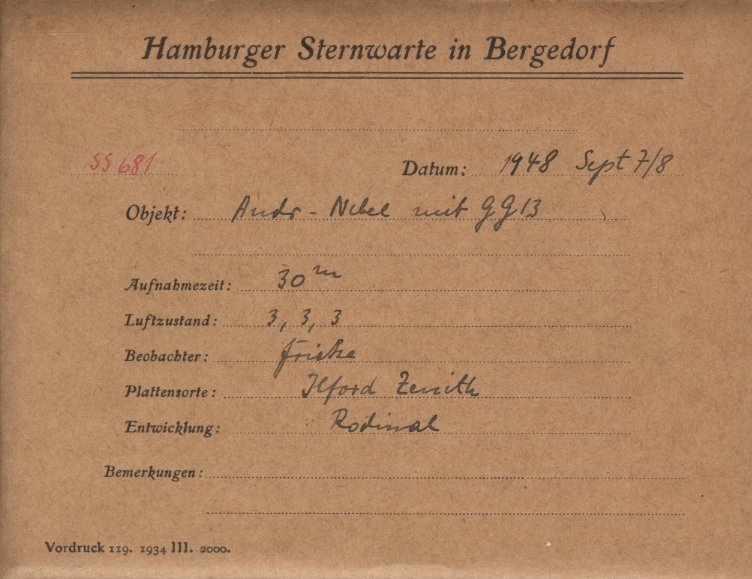 Hamburger Sternwarte in Bergedorf
SS 681 Datum: 1948 Sept 7/8
Objekt: Andr-Nebel mit GG13
Aufnahmezeit: 30m
Luftzustand: 3, 3, 3
Beobachter: Fricke
Plattensorte: Ilford Zenith
Entwicklung: Rodinal
Bemerkungen:
Vordruck 119. 1934 III. 2000.